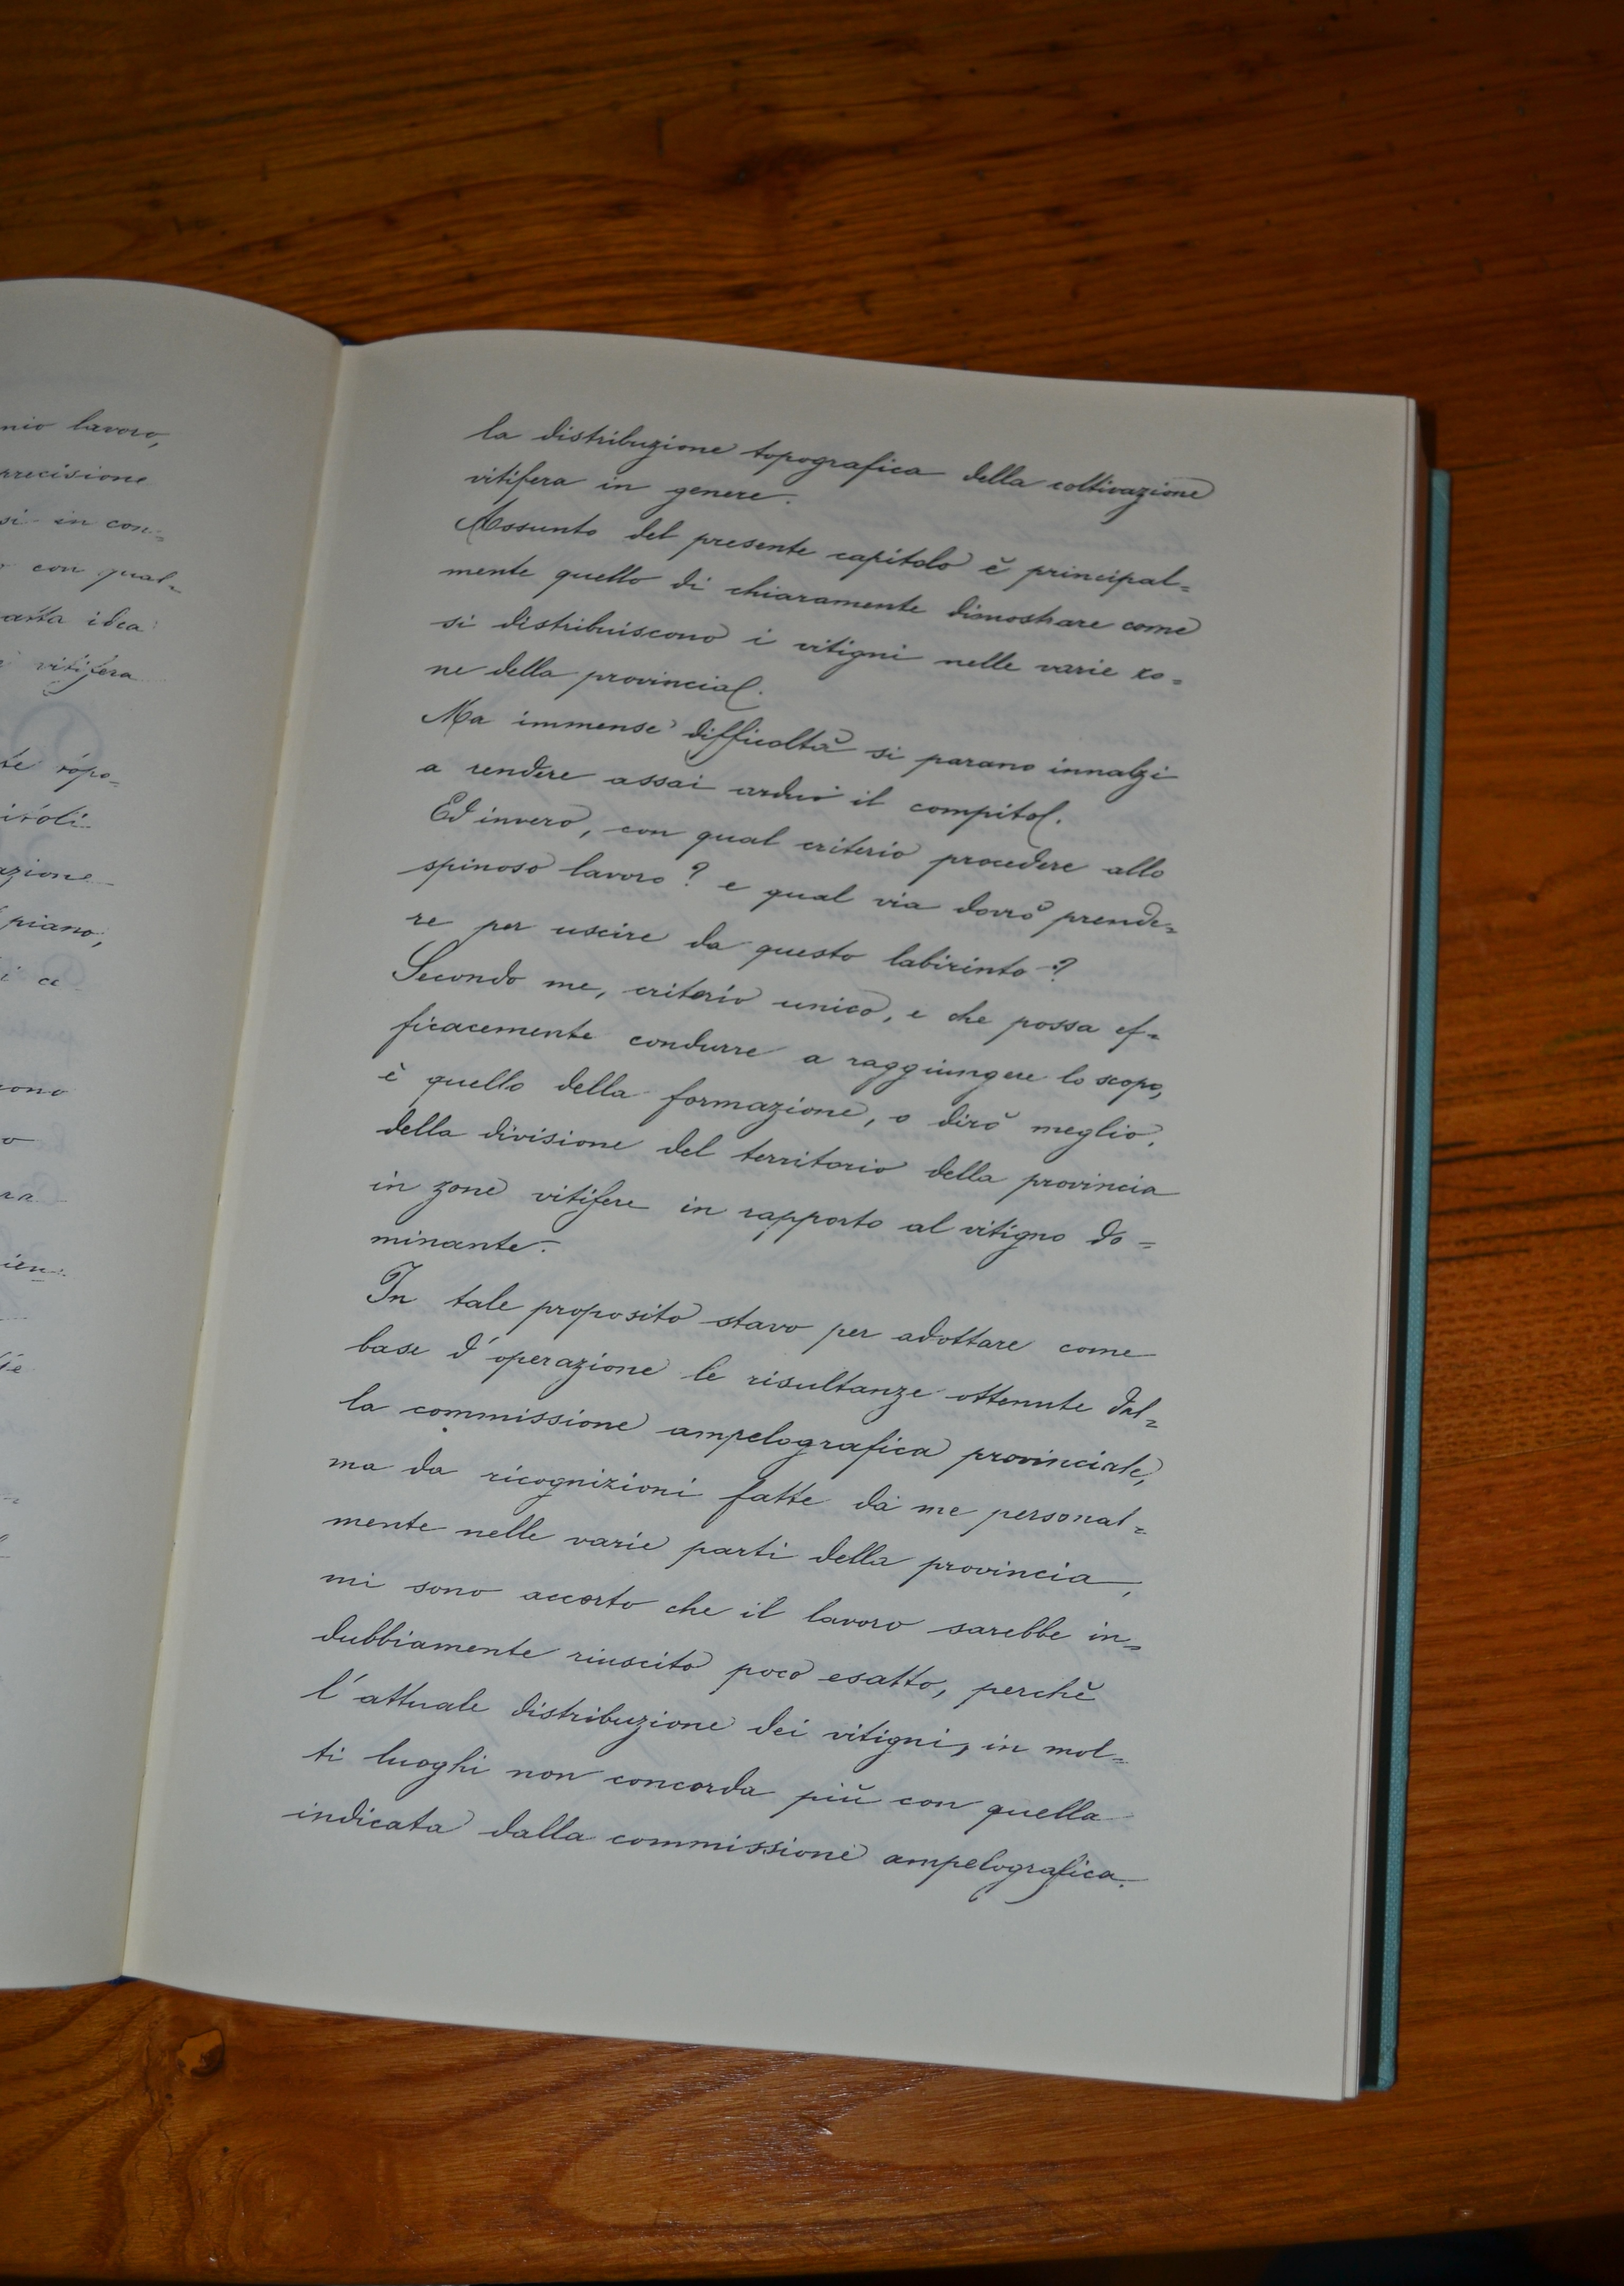 nio lavoro,
precisione
si in con=
con qual=
idea
vitifera
piano,
la distribuzione topografica della coltivazione
vitifera in genere.
Assunto del presente capitolo è principal=
mente quello di chiaramente dimostrare come
si distribuiscono i vitigni nelle varie zo=
ne della provincia.
Ma immense difficoltà si parano innalzi
a rendere assai arduo il compito.
Ed invero, con qual criterio procedere allo
spinoso lavoro? e qual via dovrò prende=
re per uscire da questo labirinto?
Secondo me, criterio unico, e che possa ef=
ficacemente condurre a raggiungere lo scopo,
è quello della formazione, o dirò meglio,
della divisione del territorio della provincia
in zone vitifere in rapporto al vitigno do=
minante.
In tale proposito stavo per adottare come
base d'operazione le risultanze ottenute dal=
la commissione ampelografica provinciale,
ma da ricognizioni fatte da me personal=
mente nelle varie parti della provincia,
mi sono accorto che il lavoro sarebbe in=
dubbiamente riuscito poco esatto, perchè
l'attuale distribuzione dei vitigni, in mol=
ti luoghi non concorda più con quella
indicata dalla commissione ampelografica.